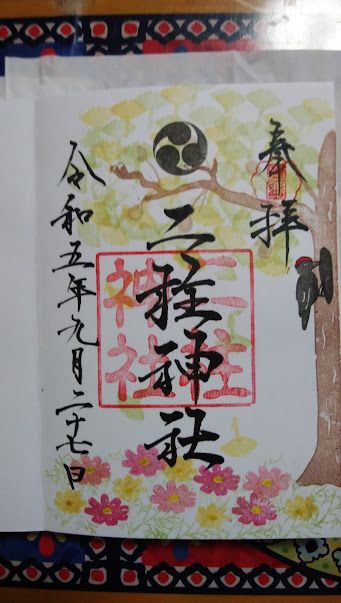 奉拝
二柱神社
二柱
神社
令和五年九月二十七日